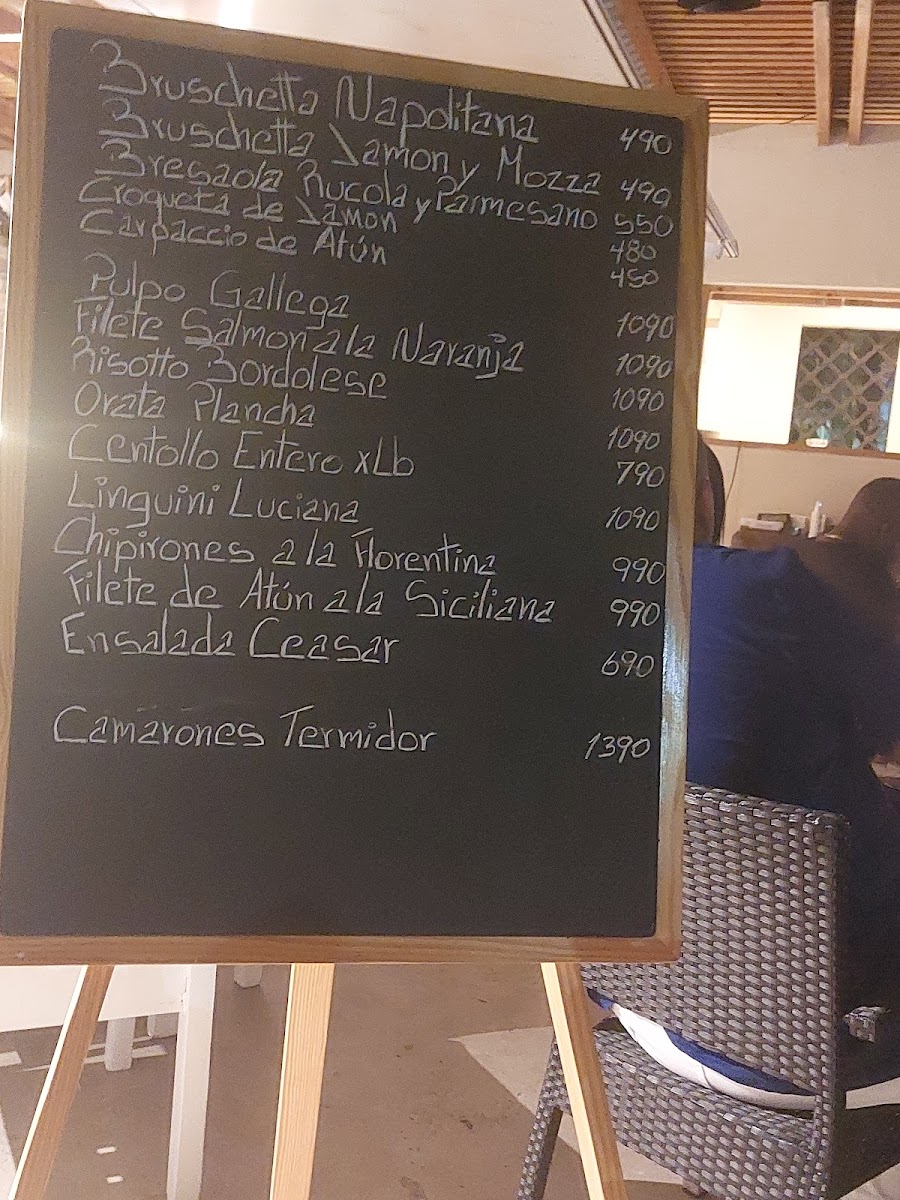 Bruschetta Napolitana 490
Bruschetta Jamon y Mozza 490
Bresaola Rucola y Parmesano 550
Croqueta de Jamon 480
Carpaccio de Atún 450
Pulpo Gallega 1090
Filete Salmon a la Naranja 1090
Risotto Bordolese 1090
Orata Plancha 1090
Centollo Entero xLb 790
Linguini Luciana 1090
Chipirones a la Florentina 990
Filete de Atún a la Siciliana 990
Ensalada Ceasar 690
Camarones Termidor 1390